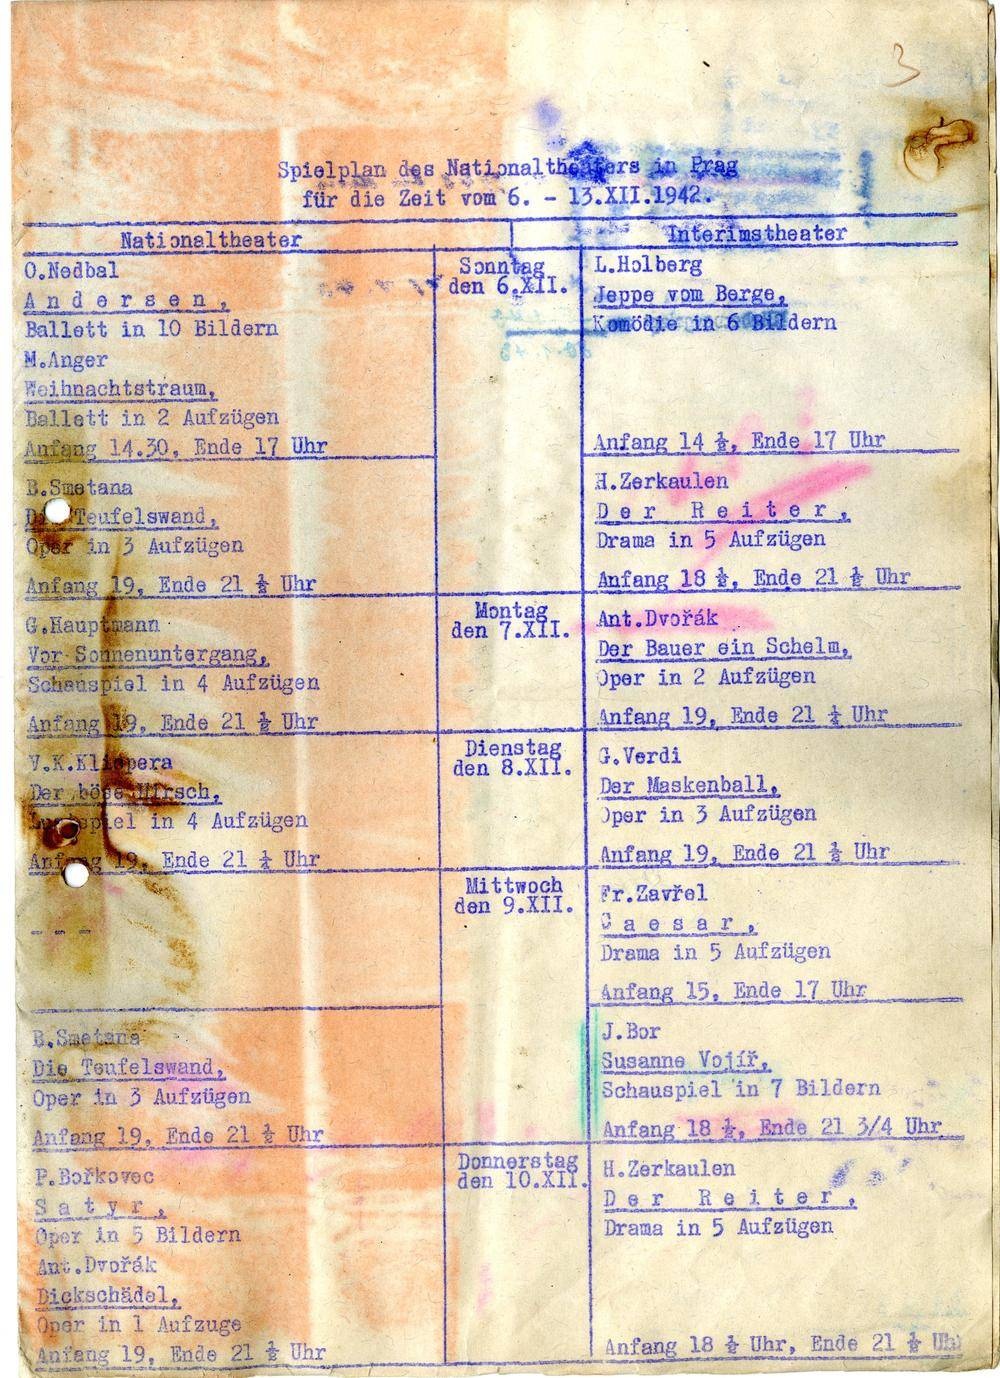 3
Spielplan des Nationaltheaters in Prag
für die Zeit vom 6. - 13.XII.1942.
Nationaltheater
Interimstheater
O.Nedbal
A n d e r s e n ,
Ballett in 10 Bildern
M.Anger
Weihnachtstraum,
Ballett in 2 Aufzügen
Anfang 14.30, Ende 17 Uhr
Sonntag
den 6.XII.
L.Holberg
Jeppe vom Berge,
Komödie in 6 Bildern
Anfang 14 ½, Ende 17 Uhr
B.Smetana
Die Teufelswand,
Oper in 3 Aufzügen
Anfang 19, Ende 21 ½ Uhr
H.Zerkaulen
D e r   R e i t e r ,
Drama in 5 Aufzügen
Anfang 18 ½, Ende 21 ½ Uhr
G.Hauptmann
Vor Sonnenuntergang,
Schauspiel in 4 Aufzügen
Anfang 19, Ende 21 ½ Uhr
Montag
den 7.XII.
Ant.Dvořák
Der Bauer ein Schelm,
Oper in 2 Aufzügen
Anfang 19, Ende 21 ½ Uhr
V.K.Klicpera
Der böse Hirsch,
Lustspiel in 4 Aufzügen
Anfang 19, Ende 21 ½ Uhr
Dienstag
den 8.XII.
G.Verdi
Der Maskenball,
Oper in 3 Aufzügen
Anfang 19, Ende 21 ½ Uhr
- - -
Mittwoch
den 9.XII.
Fr.Zavřel
C a e s a r ,
Drama in 5 Aufzügen
Anfang 15, Ende 17 Uhr
B.Smetana
Die Teufelswand,
Oper in 3 Aufzügen
Anfang 19, Ende 21 ½ Uhr
J.Bor
Susanne Vojíř,
Schauspiel in 7 Bildern
Anfang 18 ½, Ende 21 3/4 Uhr
P.Bořkovec
S a t y r ,
Oper in 5 Bildern
Ant.Dvořák
Dickschädel,
Oper in 1 Aufzuge
Anfang 19, Ende 21 ½ Uhr
Donnerstag
den 10.XII.
H.Zerkaulen
D e r   R e i t e r ,
Drama in 5 Aufzügen
Anfang 18 ½ Uhr, Ende 21 ½ Uhr